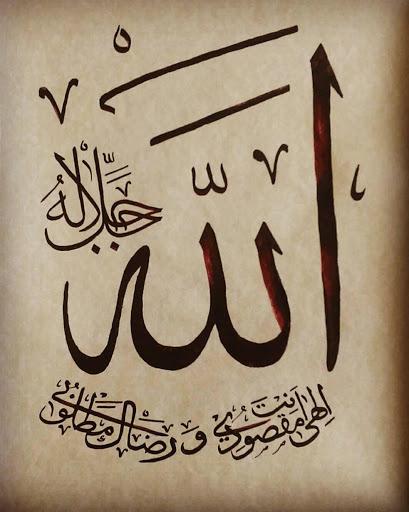 الله
جل جلاله
إلهي أنت مقصودي ورضاك مطلوبي